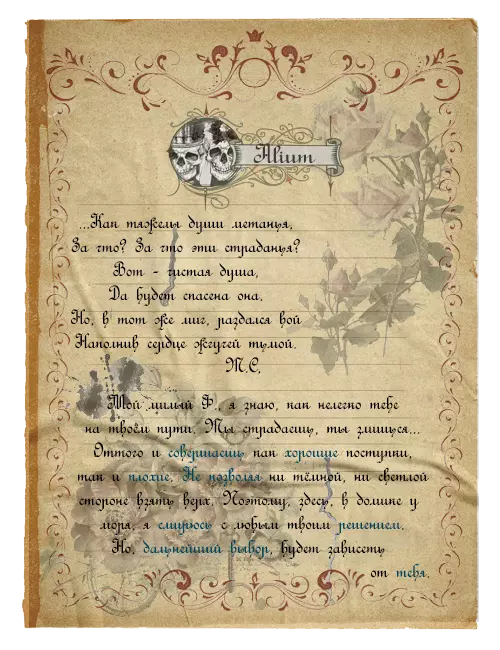 Alium
...Как тяжелы души метанья,
За что? За что эти страданья?
Вот - чистая душа,
Да будет спасена она.
Но, в тот же миг, раздался вой
Наполнив сердце жгучей тьмой.
Т.С.
Мой милый Ф., я знаю, как нелегко тебе
на твоём пути. Ты страдаешь, ты злишься...
Оттого и совершаешь как хорошие поступки,
так и плохие. Не позволяя ни тёмной, ни светлой
стороне взять верх. Поэтому, здесь, в домике у
моря, я смирюсь с любым твоим решением.
Но, дальнейший выбор, будет зависеть
от тебя.